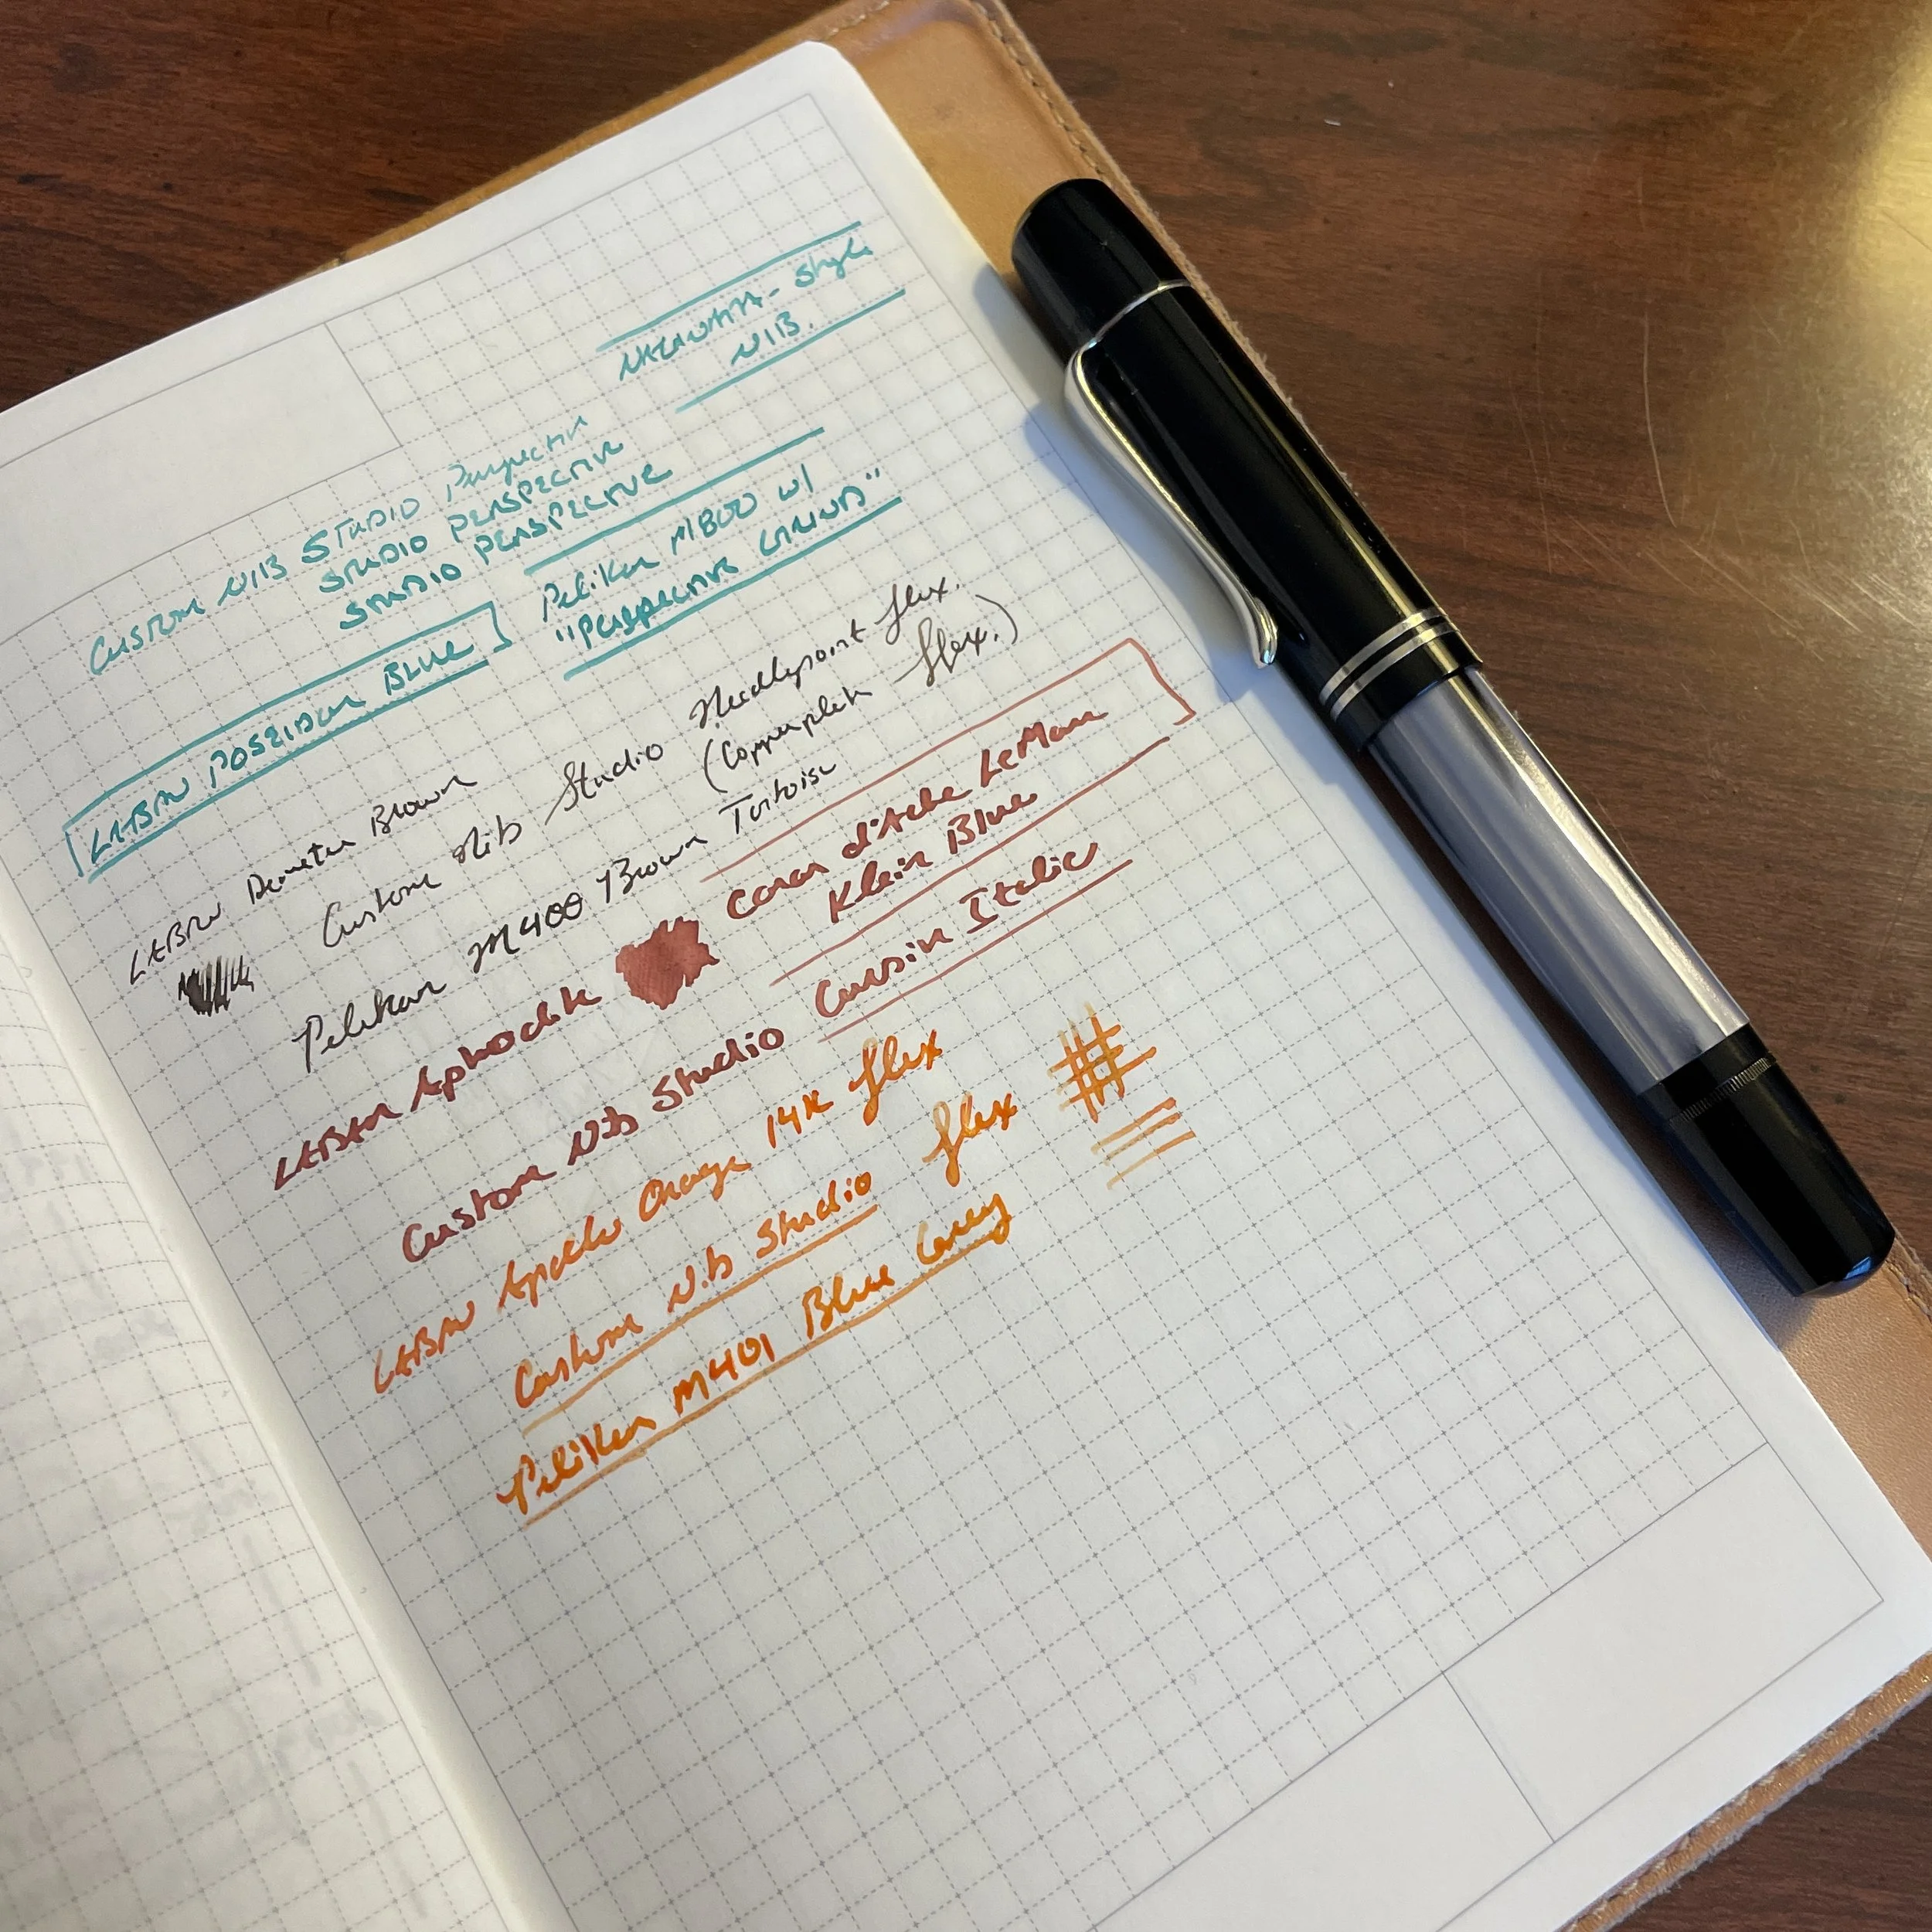 NAGINATA-Style
NIB.
Custom NIB STUDIO Perspective
STUDIO PERSPECTIVE
STUDIO PERSPECTIVE
Pelikan M800 w/
"Perspective
LABAN POSEIDON BLUE
LABAN Demeter Brown
Custom Nib Studio Needlepoint flex.
(Copperplate flex.)
Pelikan M400 Brown Tortoise
LABAN Aphrodite
Caran d'Ache LeMan
Klein Blue
Custom Nib Studio Cursive Italic
LABAN Apollo Orange 14K flex
Custom Nib Studio flex
Pelikan M401 Blue Grey